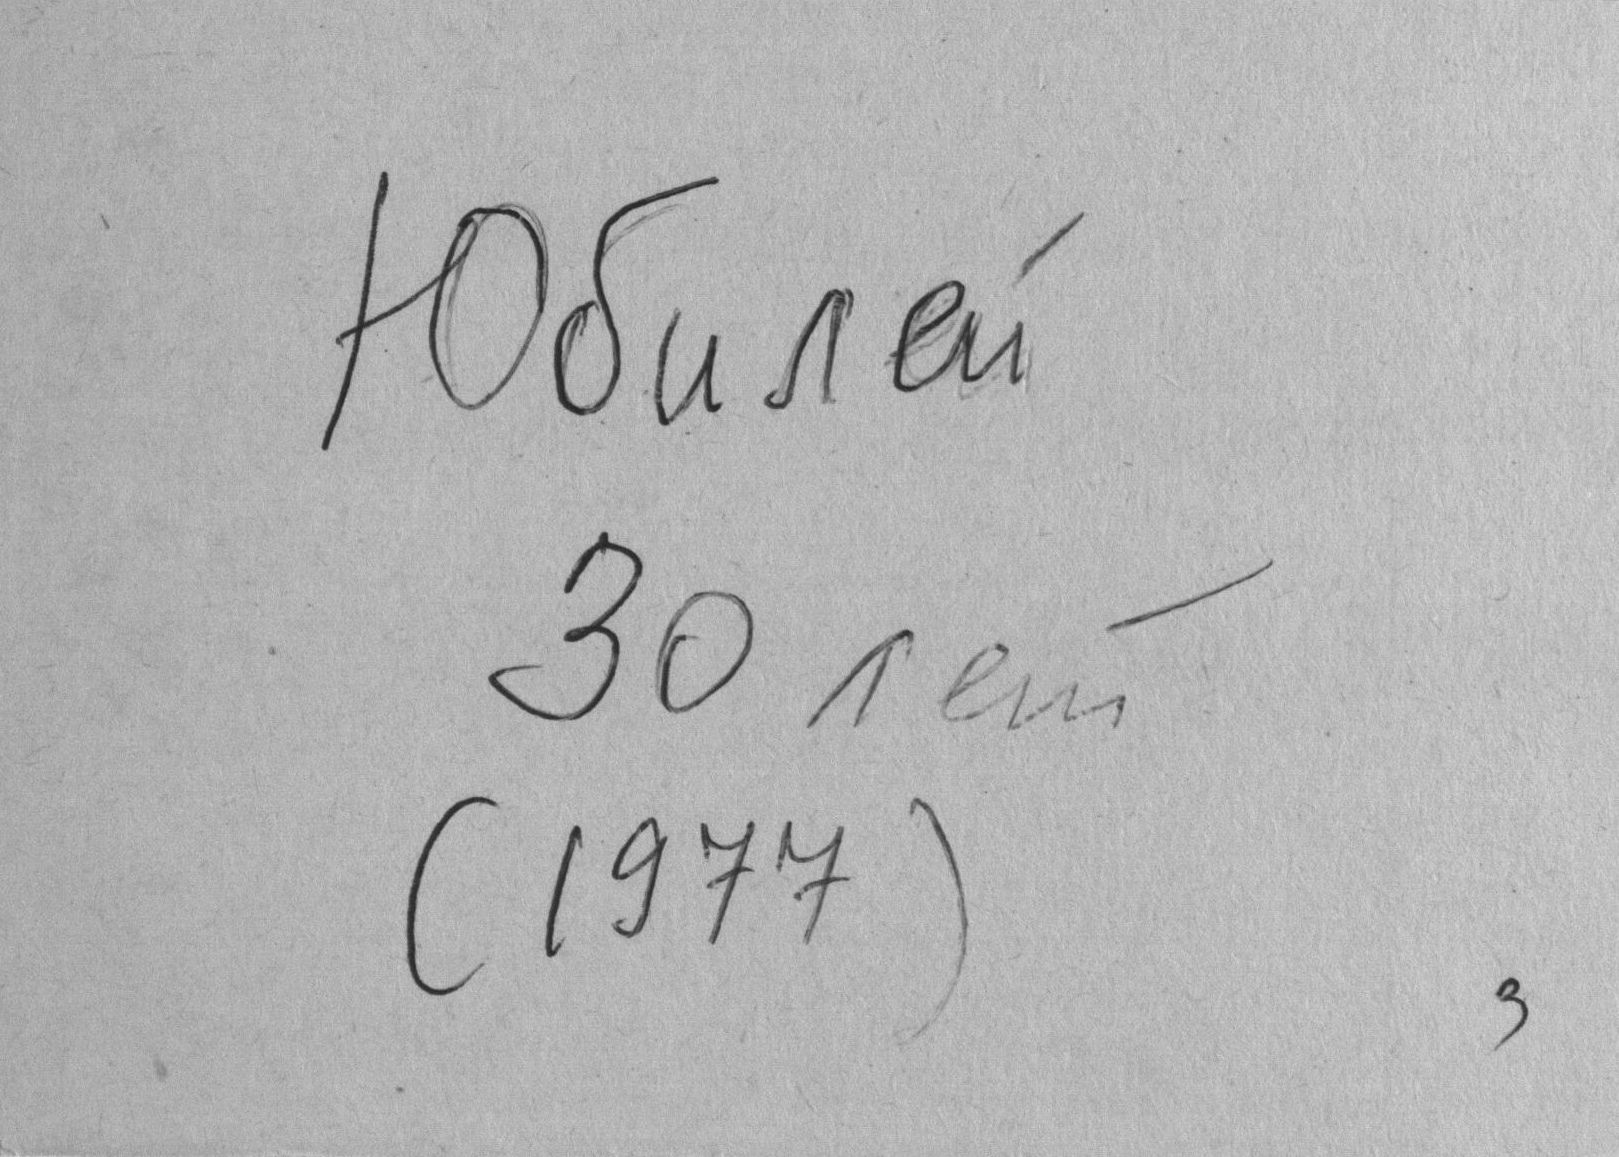 Юбилей
30 лет
(1977)
3